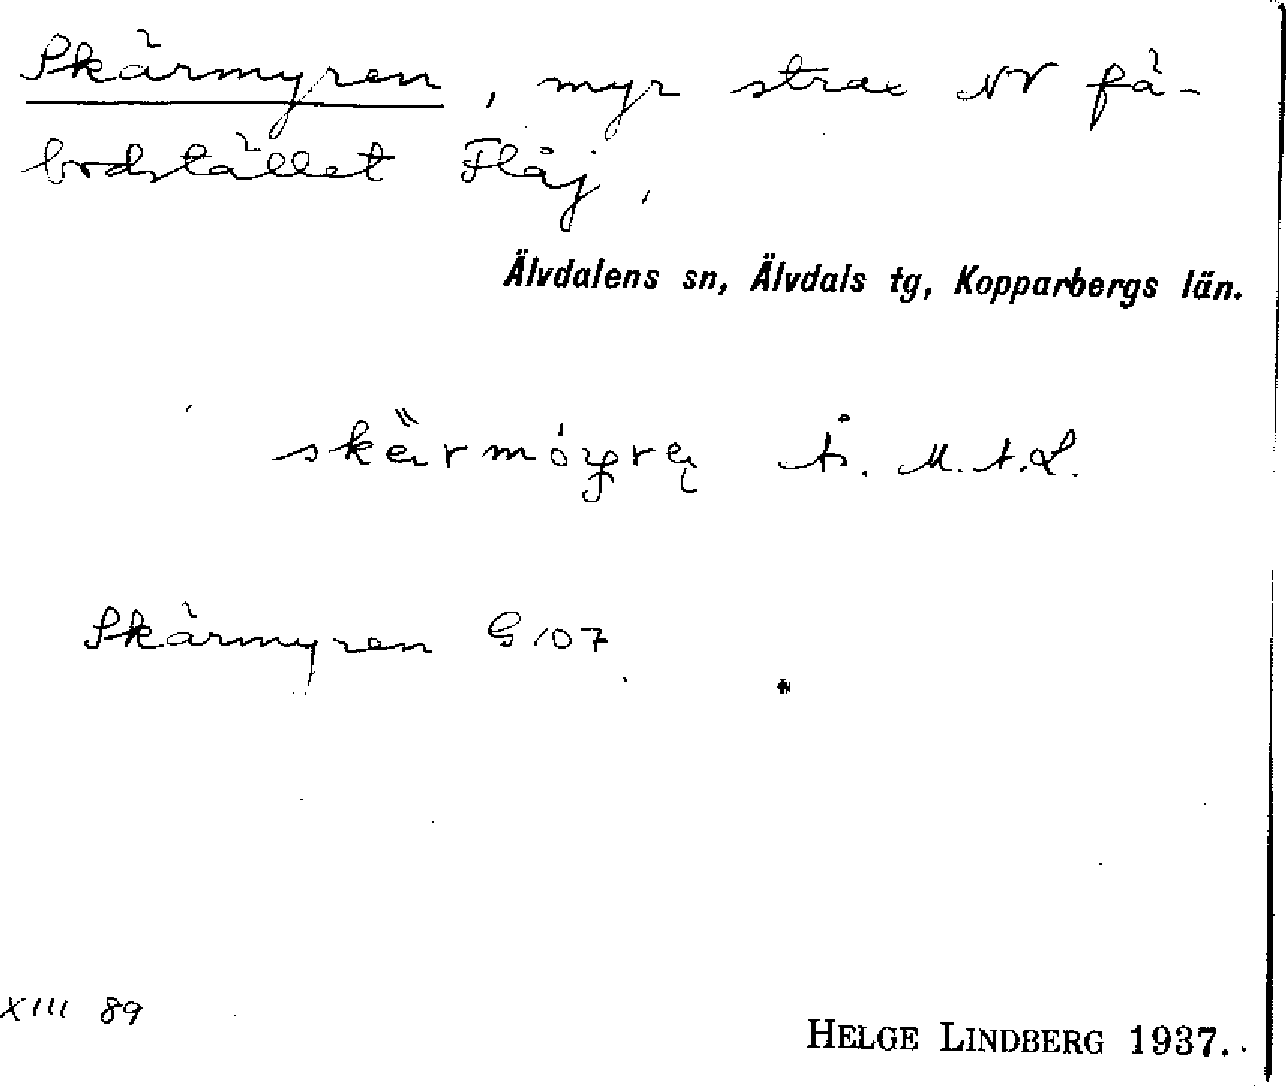 Skärmyren, myr strax NV få-
bodstället Flåj.
Älvdalens sn, Älvdals tg, Kopparbergs län.
Å. M.A.L.
Skärmyren G 107
XIII 89
HELGE LINDBERG 1937.